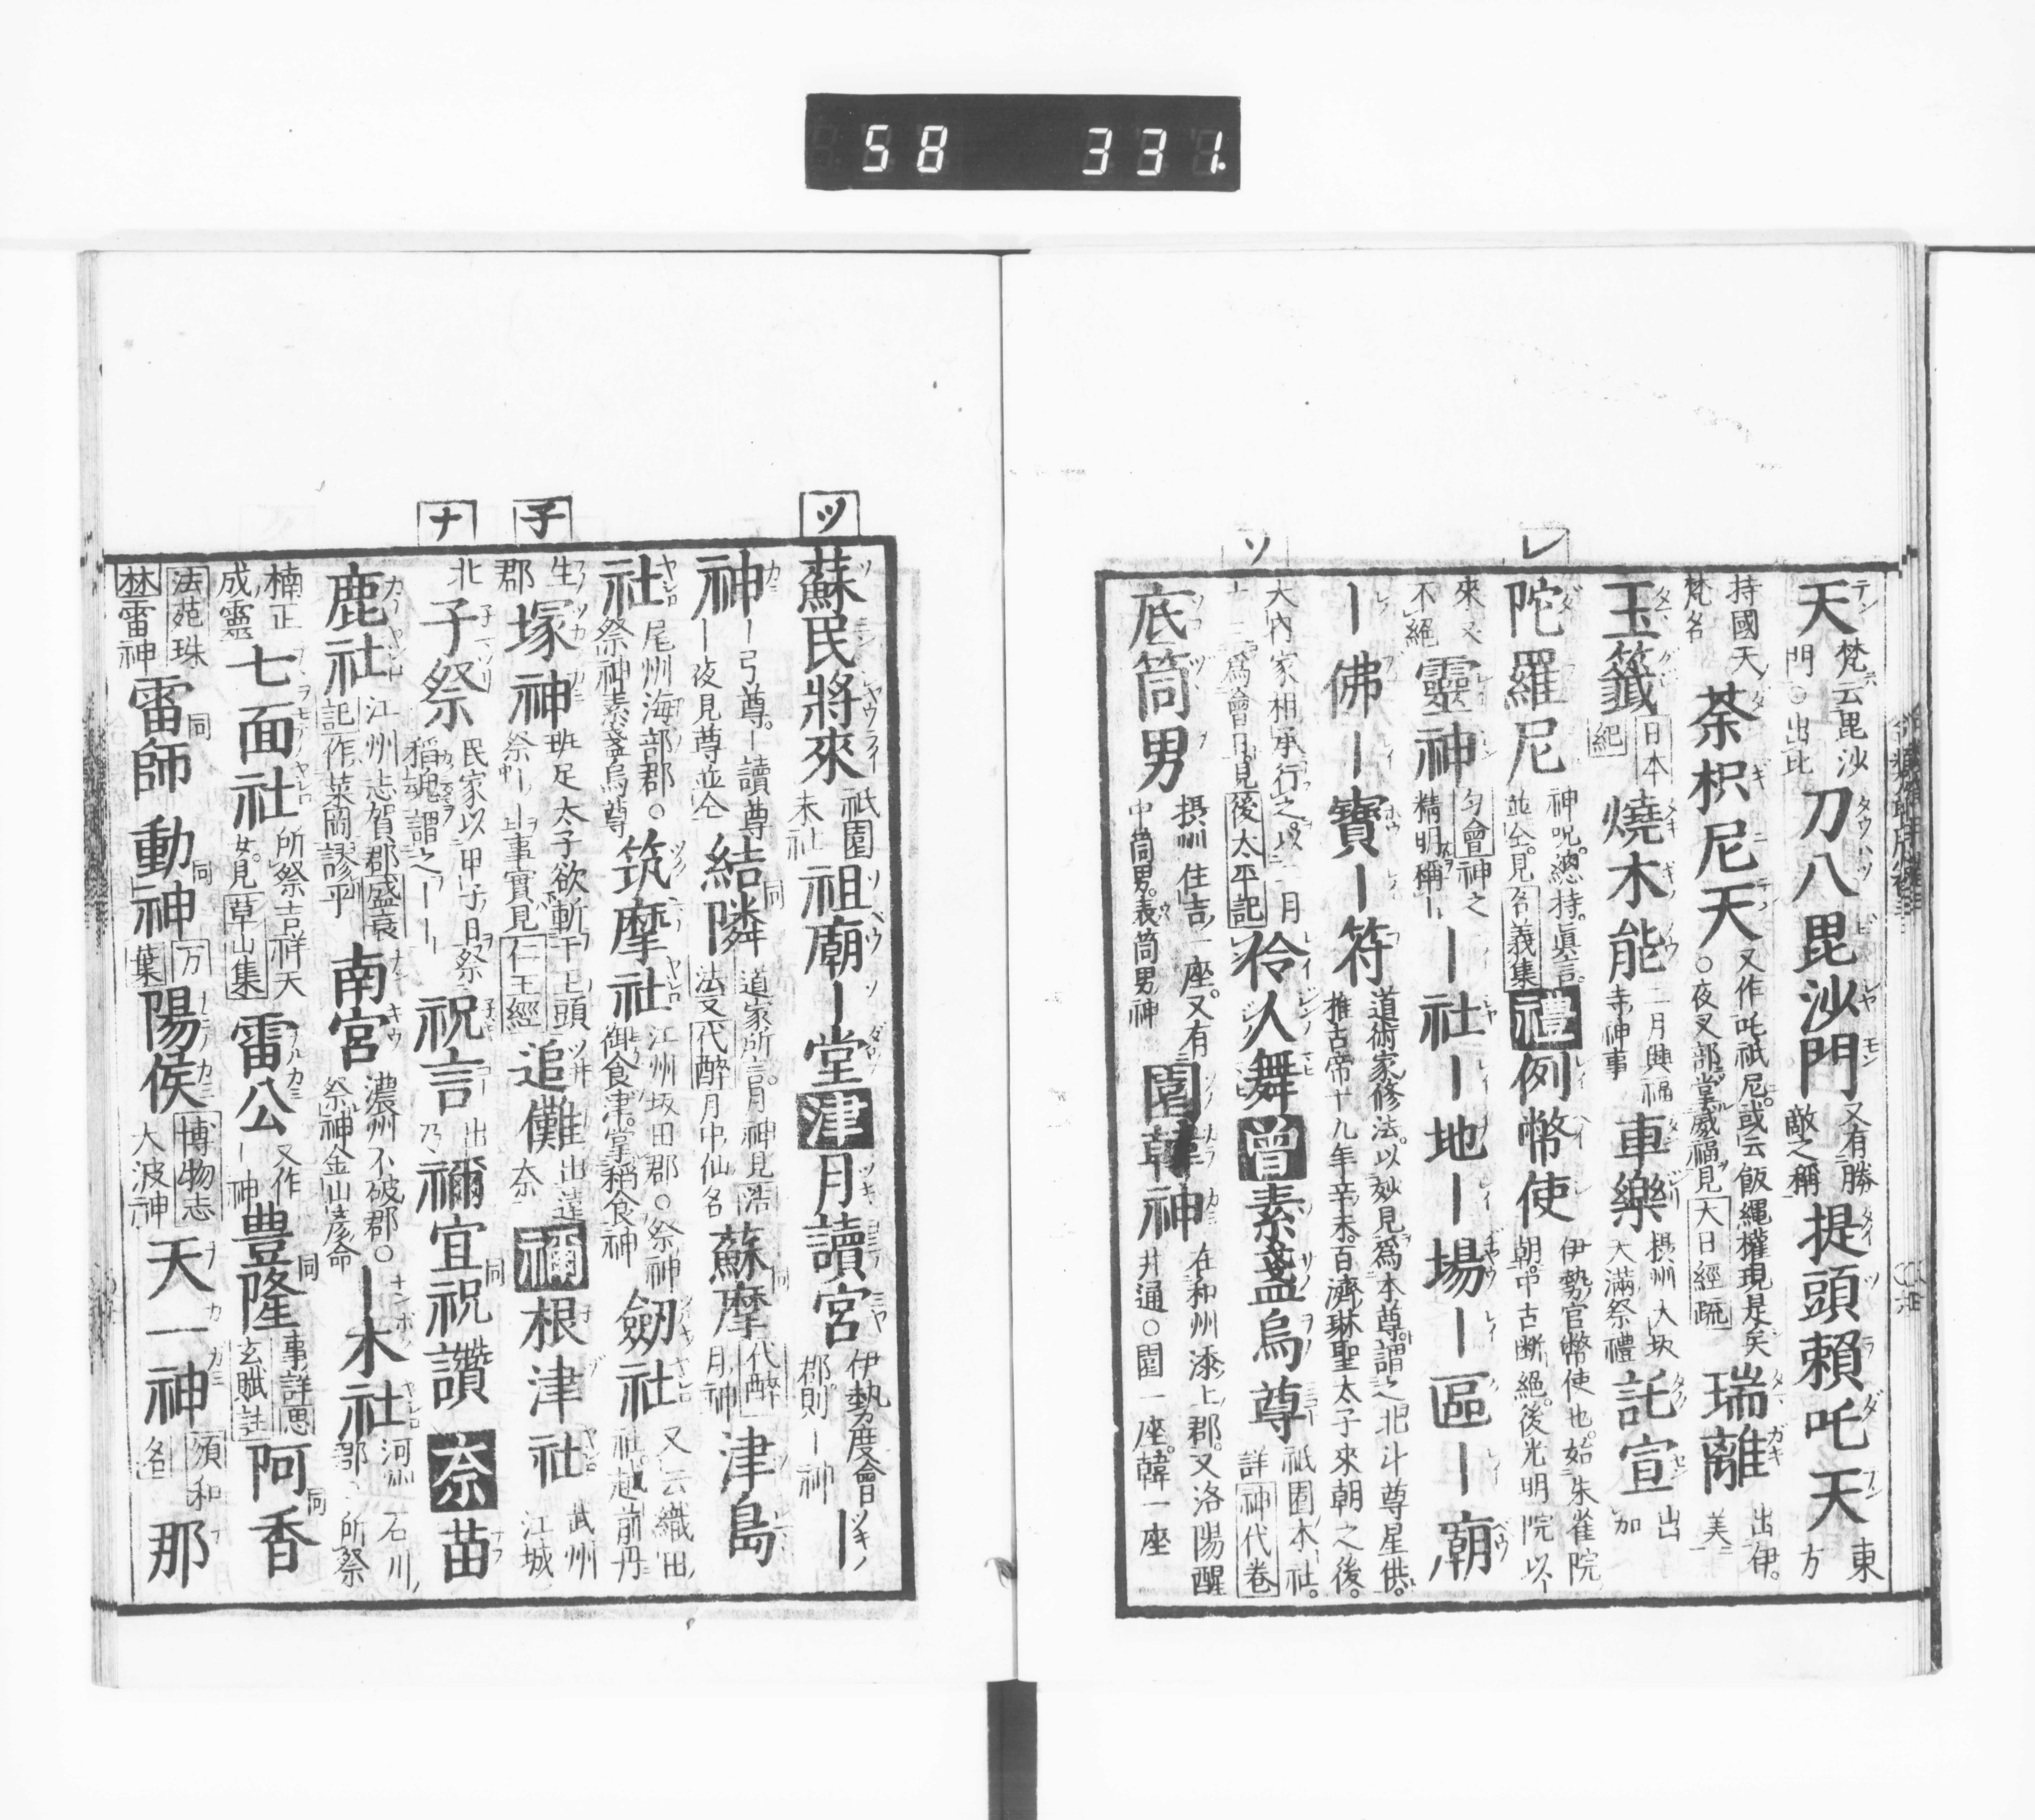 58 331
レ
ソ
天 梵云毘沙門○出比 刀八毘沙門 又有勝敵之稱 提頭賴吒天 東方
持國天梵名 荼枳尼天 又作吒祇尼。或云飯縄權現是矣○夜叉部掌威福見大日經疏 瑞離 出伊。美
玉籤 日本紀 燒木能 二月興福寺神事 車樂 摂州大坂大滿祭禮 託宣 出加
陀羅尼 神呪。總持。眞言。並仝。見名義集 禮 例幣使 伊勢官幣使也。始朱雀院朝。中古断絕。後光明院以
來又不絕 靈神 匀會神之精明稱 ー社ー地ー場ー區ー廟
ー佛ー寶ー符 道術家修法。以妙見爲本尊。謂之北斗尊星供。推古帝十九年辛未。百濟琳聖太子來朝之後。
大內家相承行之。以二月十二爲會日。見後太平記 伶人舞 曾 素盞烏尊 祇園本社。詳神代卷
底筒男 摂州住吉一座。又有中筒男。表筒男神 園韓神 在和州添上郡。又洛陽醒井通○園一座。韓一座
ツ
子
ナ
蘇民將來 祇園末社 祖廟ー堂 津 月讀宮 伊勢度會郡則ー神 ー
神 ー弓尊。ー讀尊ー夜見尊並仝 結隣 同 道家所言。月神見 法又代醉月中仙名 蘇摩 同 代醉月神 津島
社 尾州海部郡。○祭神素盞烏尊 筑摩社 江州坂田郡○祭神御食津。掌稻食神 劔社 又云織田社。越前丹
生郡 塚神 班足太子欲斬千王頭祭ーー事實見仁王經 追儺 出達奈 禰 根津社 武州江城
北 子祭 民家以甲子日祭稻魂謂之ーー 祝言 出乃 禰宜 祝讚 同 奈 苗
鹿社 江州志賀郡盛衰記作菜岡謬乎 南宮 濃州不破郡○祭神金山彥命 ー木社 河州石川郡所祭
楠正成靈 七面社 所祭吉祥天女。見草山集 雷公 又作ー神 豊隆 同 事詳思玄賦註 阿香 同
法苑珠林雷神 雷師 同 動神 同 万葉 陽侯 博物志大波神 天一神 須和名 那